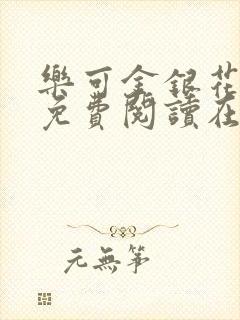 樂可金銀花
免費閱讀在
元無筝